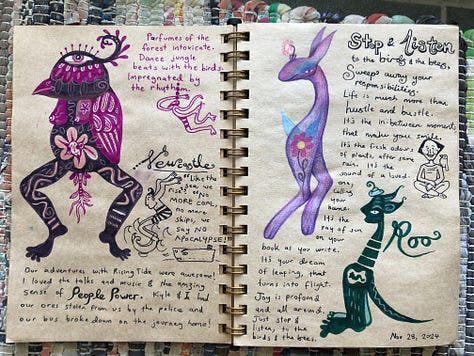 Perfumes of the
forest intoxicate.
Dance, jungle
beats with the birds.
Impregnated by
the rhythm.
Newcastle
"Like the
sea, we
rise." "NO
MORE COAL,
no more
ships, we
say NO
APOCALYPSE!!"
Our adventures with Rising Tide were awesome!
I loved the talks and music & the amazing
sense of People Power. Kyle & I had
our ores stolen from us by the police and
our bus broke down on the journey home!
Stop & listen
to the birds & the trees.
Sweep away your
responsibilities.
Life is much more than
hustle and bustle.
It's the in-between moments
that make you smile.
It's the fresh odour
of plants after some
rain. It's the
sound of a loved
one,
calling
your
name.
It's the
ray of sun
on your
book as you write.
It's your dream
of leaping, that
turns into flight.
Joy is profound
and all around.
Just stop &
listen, to the
birds & the trees.
Roo
Nov 28, 2024